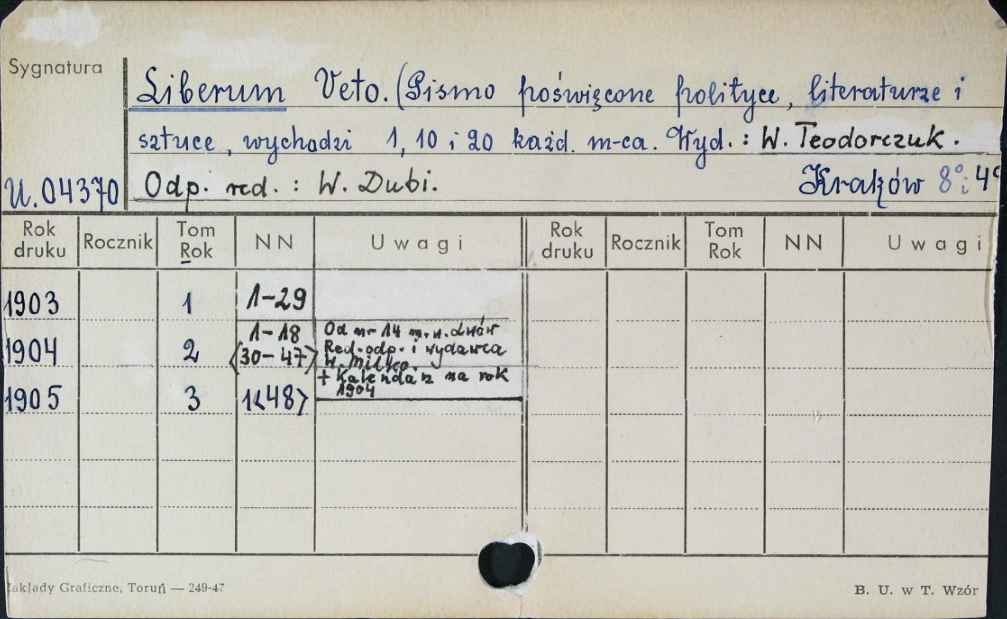 Sygnatura
Liberum Veto. (Pismo poświęcone polityce, literaturze i
sztuce, wychodzi 1, 10 i 20 każd. m-ca. Wyd. : W. Teodorczuk.
U.04370 Odp. red. : W. Dubi. Kraków 8° i 4°
Rok druku Rocznik Tom Rok NN Uwagi Rok druku Rocznik Tom Rok NN Uwagi
1903 1 1-29
1904 2 1-18
<30-47>
Od nr 14 m. w. dwór
Red. odp. i wydawca
W. Miłko.
+ Kalendarz na rok
1904
1905 3 1<48>
Zakłady Graficzne, Toruń — 249-47 B. U. w T. Wzór